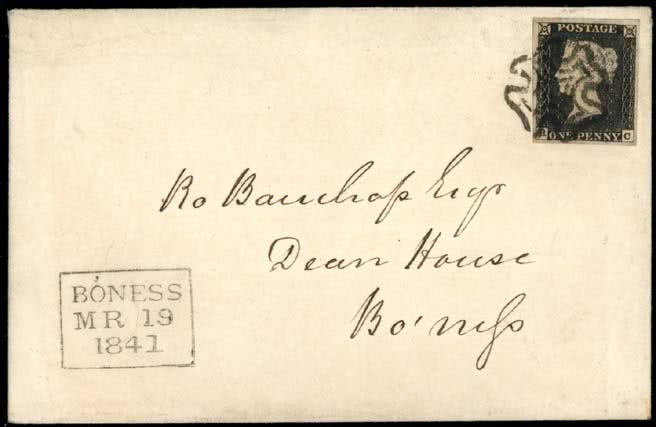 POSTAGE
ONE PENNY C
Ro Bauchop Esqr
Dean House
Bo'ness
BO'NESS
MR 19
1841